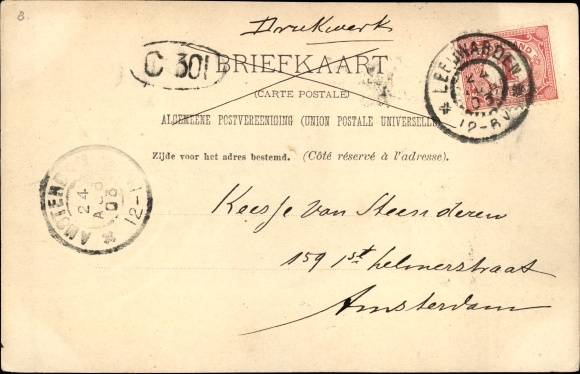 8.
Drukwerk
C 301
BRIEFKAART
(CARTE POSTALE)
ALGEMEENE POSTVEREENIGING (UNION POSTALE UNIVERSELLE)
Zijde voor het adres bestemd. (Côté réservé à l'adresse).
LEEUWARDEN
24
03
12-6V
AMSTERD
24
AUG
03
12-1
Keesje van Steenderen
159 1st helmerstraat
Amsterdam